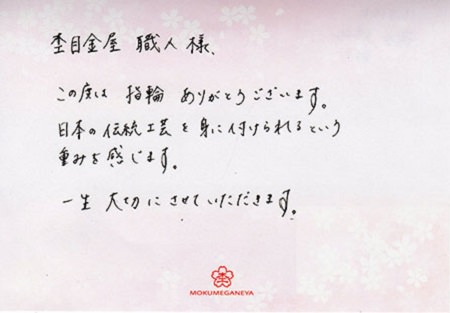 杢目金屋 職人 様、
この度は 指輪 ありがとうございます。
日本の伝統工芸を身に付けられるという
重みを感じます。
一生 大切にさせていただきます。
MOKUMEGANEYA